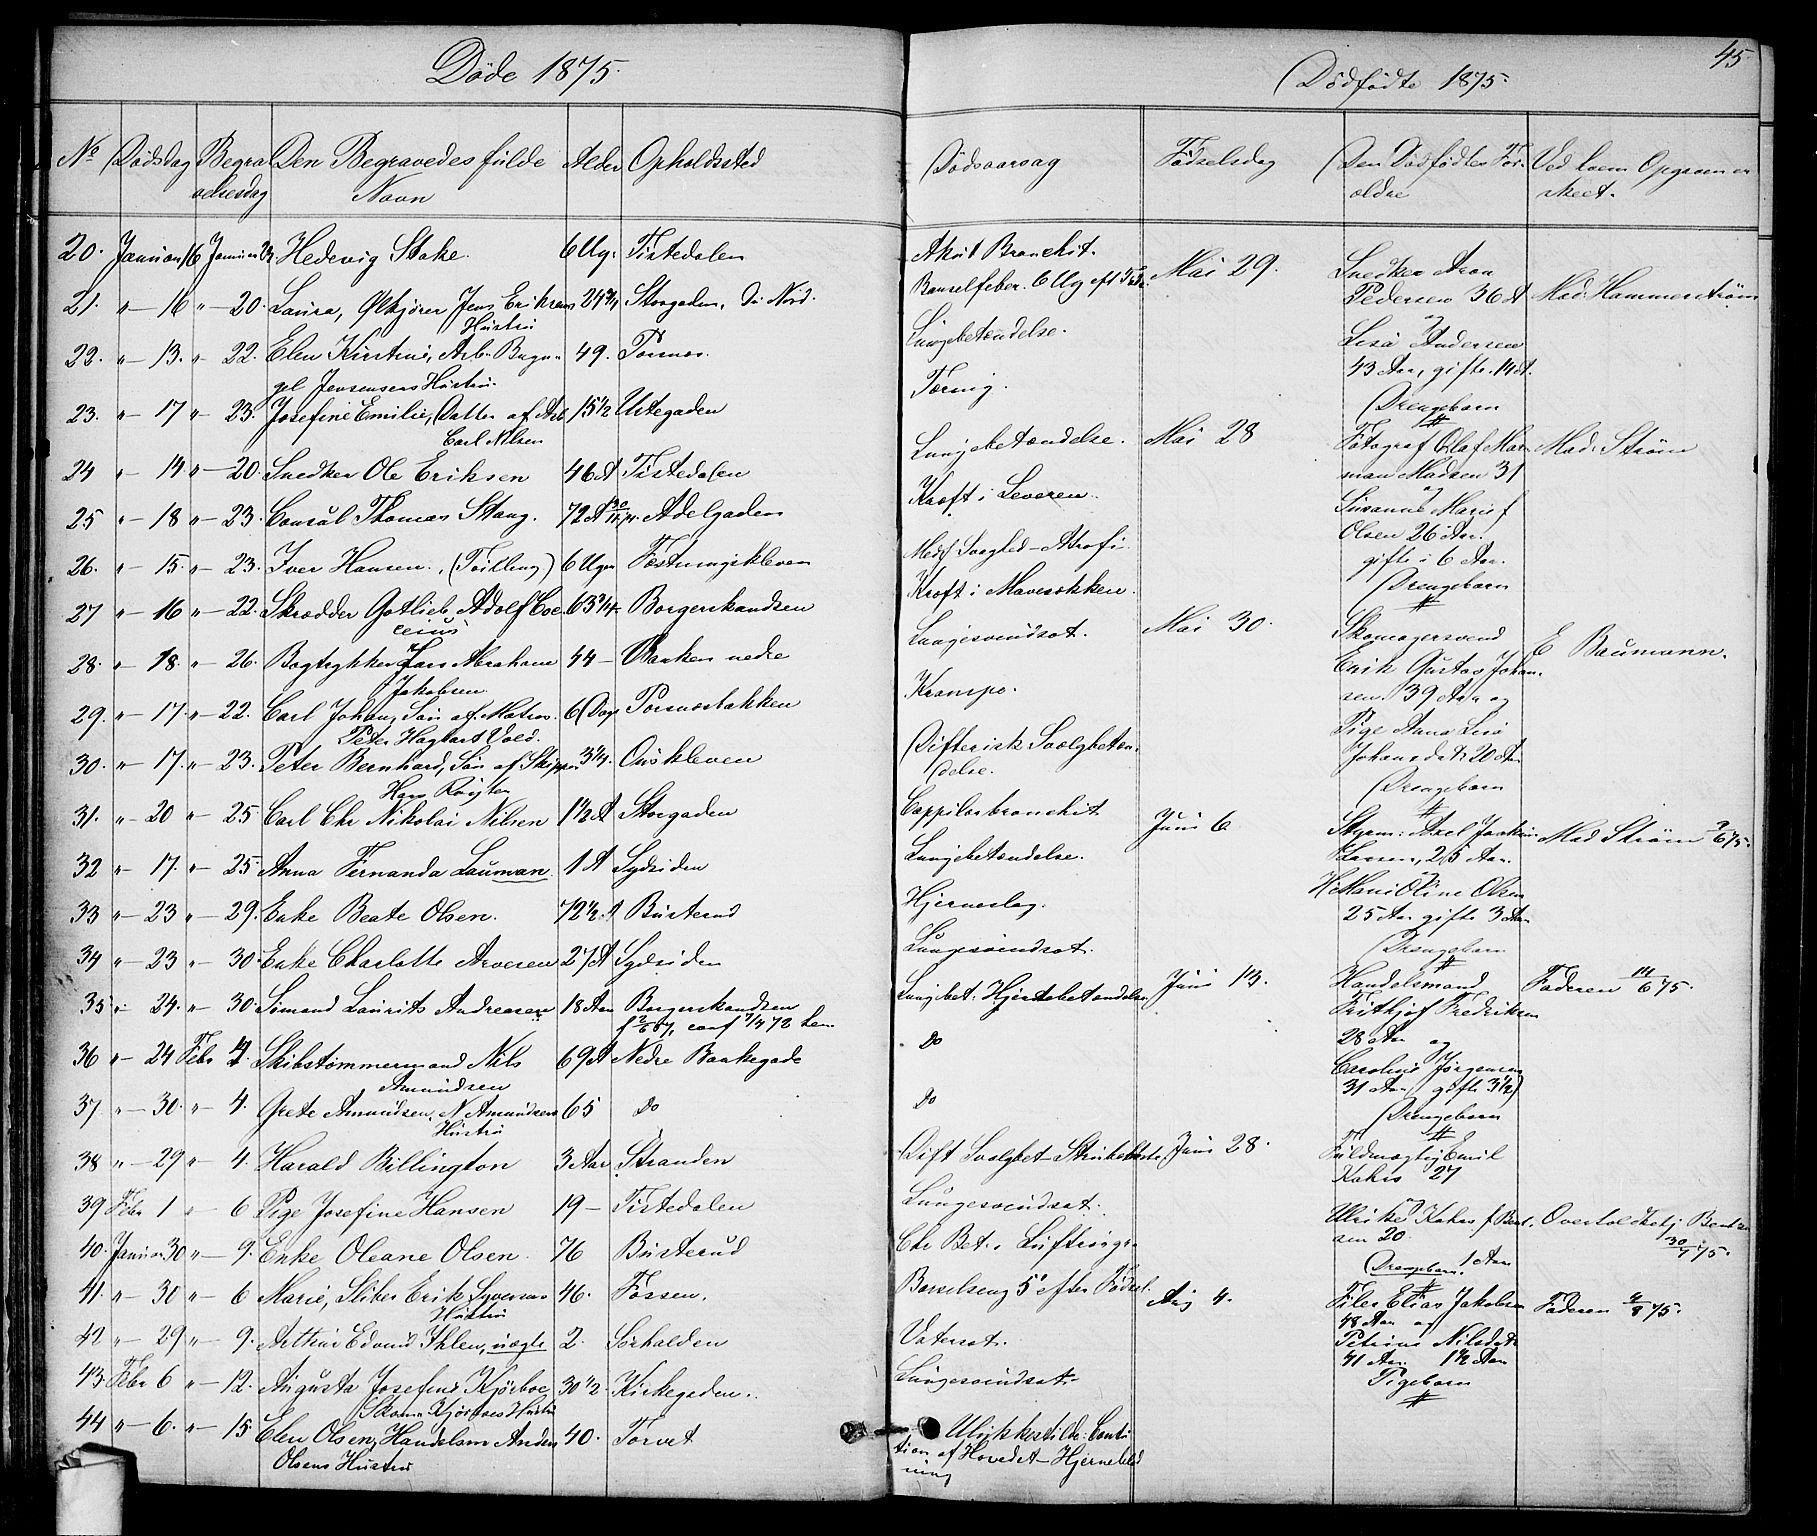 Døde 1875.
No
Dødsdag
Begra
velsesdag
Den Begravedes fulde
Navn
Alder
Opholdssted
20. Januar 16 Januar Hedevig Stake. 6 Ug. Tistedalen
21. " — 16 " — 20. Laura, Ølkjører Jens Eriksens Storgaden, Nord.
Hustru
22. " — 13. " — 22. Elen Kirstine, Arb. 49. Torsnæs.
Jensens Hustru.
23. " — 17 " — 23. Josefine Emilie, Datter af Arb 15 1/2
Carl Nilsen
24 " — 14 " — 20. Snedker Ole Eriksen 46 A Tistedalen
25 " — 18 " — 23. Consul Thomas Stang. 72 A Adelgaden
26. " — 15. " — 23. Iver Hansen. (Tvilling) 6 Uger Fæstningskleven
27 " — 16 " — 22. Skrædder Gotlieb Adolf 63 3/4. Borgerskandsen
28. " — 18. " — 26. Bogtrykker Lars Abraham 44 — Banken nedre
Jakobsen.
29. " — 17. " — 22. Carl Johan, Søn af Matros 6 Dage Torsnæsbakken
Peter Hagbart Vold.
30. " — 17. " — 23. Peter Bernhard, Søn af Skipper 3 1/4.
Hans
31. " — 20 " — 25 Carl Chr Nikolai Nilsen 1 1/2 A Storgaden
32 " — 17. " — 25 Anna Fernanda Lauman 1 A Sydsiden
33 " — 23 " — 29. Enke Beate Olsen. 72 1/2. Busterud
34 " — 23 " — 30. Enke Charlotte Arvesen 27 A Sydsiden
35 " — 24. " — 30. Sømand Laurits Andreasen 18 Aar Borgerskandsen
36 " — 24 Febr Skibstømmermand Nils 69 A Nedre Bankegade
Amundsen
37. " — 30. " — 4. Grete Amundsen, N Amundsens 65 Do
Hustru
38 " — 29 " — 4. Harald Billington 3 Aar Stranden
39 Febr 1 " 6 Pige Josefine Hansen 19 — Tistedalen
40. Januar 30 " — 9. Enke Oleane Olsen. 76 Busterud
41. " — 30 " — 6 Marie, Sliber Erik Syversens 46. Fossen.
Hustru
42 " — 29 " — 9. Arthur Edvind Ihlen, uægte 2. Sørhalden
43 Febr 6 " — 12. Augusta Josefine Kjørboe 30 1/2. Kirkegaden.
Skom. Kjørboes Hustru
44 " — 6. " — 15 Elen Olsen, Handelsm Anders 40. Torvet
Olsens Hustru
45
Dødfødte 1875.
Dødsaarsag
Fødselsdag
Den Dødfødtes For-
ældre
Ved hvem Opgaven er
skeet.
Akut Bronchit.
Barselfeber. 6 Ug eft
Lungebetændelse.
Tæring.
Lungebetændelse.
Kræft i Leveren.
Atrofi
Kræft i Mavesækken.
Lungesvindsot.
Krampe.
Difterisk Svælgbetæn-
delse.
Cappilærbronchit
Lungebetændelse.
Hjerneslag.
Lungesvindsot.
Lungbet. Hjertebetændelse
Do
Do
Dift Svælgbet
Lungesvindsot.
Chr Bet. i Luftrør
Barselseng 5 efter Fødsel
Vatersot.
Lungesvindsot.
tion af Hovedet — Hjernebetænd
ning
Mai 29.
Snedker Aron
Pedersen 36 A
og
Lisa Andersen
43 Aar, gifte. 14 A.
Drengebarn
Mad. Hammerstrøm
Mai 28
Fotograf Olaf Her-
man Madsen 31
og
Susanne Marie f
Olsen 26 Aar.
gifte i 6 Aar.
Drengebarn
Mad. Strøm
Mai 30.
Skomagersvend
Erik Gustav Johan-
sen. 39 Aar og
Pige Anna Lise
Johansdtr 20 Aar
Drengebarn
E Baumann.
Juni 6
Styrm: Axel Joakim
Larsen, 25 Aar.
og
Marie Oline Olsen
25 Aar gifte 3 Aar
Drengebarn
Mad Strøm 7/6 75.
Juni 13.
Handelsmand
Frithjof Fredriksen
28 Aar og
Caroline Jørgensen
31 Aar (gifte 3 1/2)
Drengebarn
Faderen 14/6 75.
Juni 28.
Fuldmægtig Emil
27
og
Ulrike f Bent-
sen 20.
1 Aar
Drengebarn.
Bentsen
30/7 75.
Aug 4.
Filer Elias Jakobsen
48 Aar og
Petrine Nilsdatter
41 Aar 1 1/2 Aar
Pigebarn
Faderen 4/8 75.